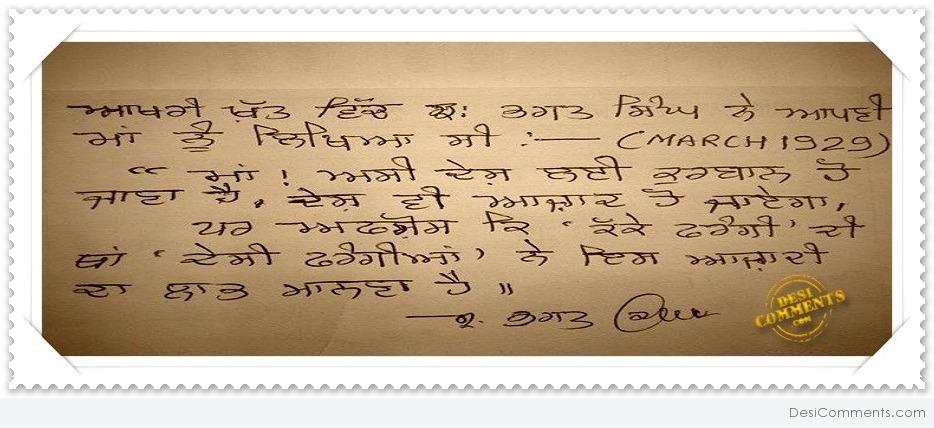 ਆਖਰੀ ਖੱਤ ਵਿੱਚ ਸ਼: ਭਗਤ ਸਿੰਘ ਨੇ ਆਪਣੀ
ਮਾਂ ਨੂੰ ਲਿਖਿਆ ਸੀ :— (MARCH 1929)
“ ਮਾਂ ! ਅਸੀ ਦੇਸ਼ ਲਈ ਕੁਰਬਾਨ ਹੋ
ਜਾਣਾ ਹੈ, ਦੇਸ਼ ਵੀ ਆਜ਼ਾਦ ਹੋ ਜਾਏਗਾ,
ਪਰ ਅਫਸ਼ੋਸ ਕਿ ‘ ਗੋਰੇ ਫਰੰਗੀ’ ਦੀ
ਥਾਂ ‘ ਦੇਸੀ ਫਰੰਗੀਆਂ’ ਨੇ ਇਸ ਆਜ਼ਾਦੀ
ਦਾ ਲਾਭ ਮਾਨਣਾ ਹੈ ॥
—ਸ਼. ਭਗਤ ਸਿੰਘ
DESI COMMENTS .COM
DesiComments.com